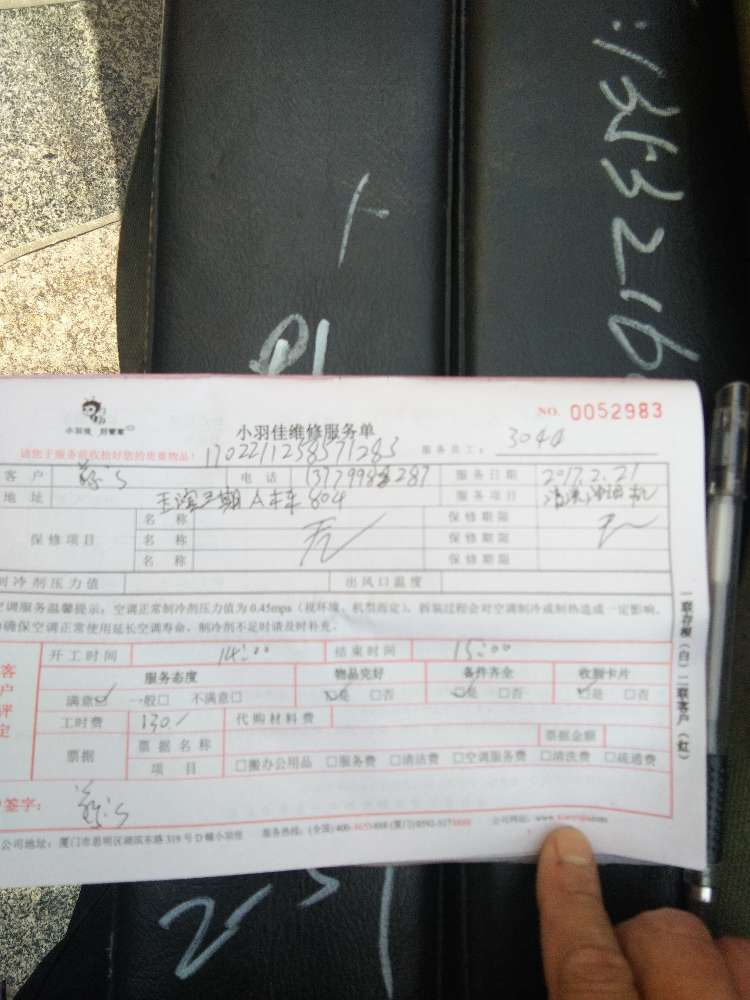 NO. 0052983
小羽佳 好管家
小羽佳维修服务单
请您于服务前收拾好您的贵重物品! 1702211258571283 服务员工: 3044
客 户 电 话 服务日期 2017.2.21
地 址 三期 A 804 服务项目 清洗油烟机
保修项目 名 称 无 保修期限 无
名 称 保修期限
名 称 保修期限
制冷剂压力值 出风口温度
空调服务温馨提示:空调正常制冷剂压力值为0.45mpa(视环境、机型而定),拆装过程会对空调制冷或制热造成一定影响,
为确保空调正常使用延长空调寿命,制冷剂不足时请及时补充。
开工时间 14:00 结束时间 15:00
客户评定
服务态度 物品完好 备件齐全 收服卡片
满意☑ 一般□ 不满意□ ☑是 □否 ☑是 □否 ☑是 □否
工时费 130/ 代购材料费
票据 票据名称 票据金额
项 目 □搬办公用品 □服务费 □清洁费 □空调服务费 □清洗费 □疏通费
签字:
公司地址:厦门市思明区湖滨东路319号D幢小羽佳 服务热线:(全国)400- -888 (厦门)0592-517 公司网站:www.
一联存根(白)二联客户(红)